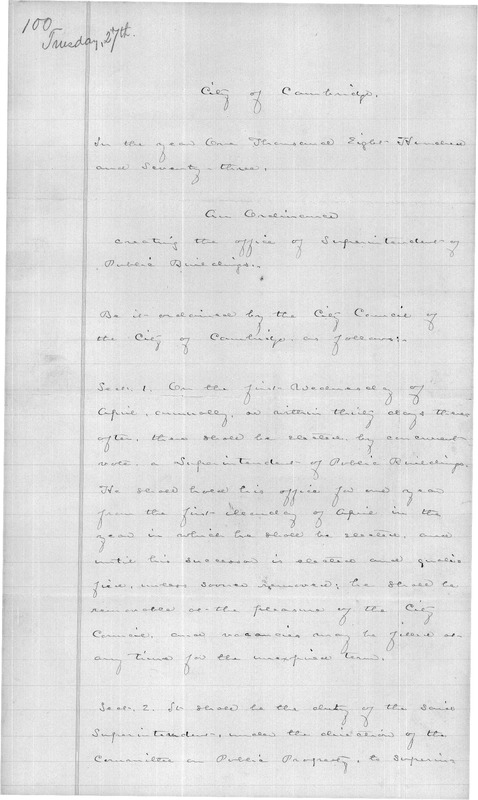 100
Tuesday, 27th.
City of Cambridge.
In the year One Thousand Eight Hundred
and Seventy-three.
An Ordinance
creating the office of Superintendent of
Public Buildings.
Be it ordained by the City Council of
the City of Cambridge, as follows:-
Sect. 1. On the first Wednesday of
April, annually, or within thirty days there
after, there shall be elected, by concurrent
vote, a Superintendent of Public Buildings.
He shall hold his office for one year
from the first Monday of April in the
year in which he shall be elected, and
until his successor is elected and quali
fied, unless sooner removed; he shall be
removable at the pleasure of the City
Council, and vacancies may be filled at
any time for the unexpired term.
Sect. 2. It shall be the duty of the said
Superintendent, under the direction of the
Committee on Public Property, to superin